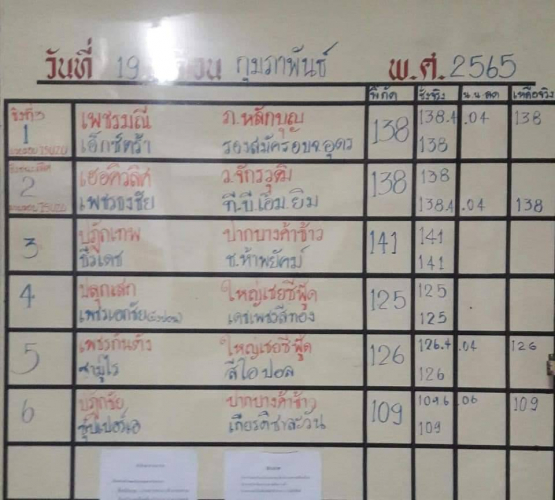 วันที่ 19 เดือน กุมภาพันธ์ พ.ศ. 2565
พิกัด ชั่งจริง น.น.ลด เหลือจริง
1 เพชรมณี ภ.หลักบุญ 138 138.4 .04 138
เอ็กซ์ตร้า รองสมัครอบจ.อุดร 138
2 เฮอคิวลิศ ว.จักรวุฒิ 138 138
เพชรธงชัย ที.บี.เอ็ม.ยิม 138.4 .04 138
3 ปฏักเทพ ปากบางค้าข้าว 141 141
ชีวเดช ช.ห้าพยัคฆ์ 141
4 ปลุกเสก ใหญ่เชยซีฟู๊ด 125 125
เพชรเอกชัย เดชเพชรสีทอง 125
5 เพชรกันตัง ใหญ่เชยซีฟู๊ด 126 126.4 .04 126
ซามูไร สีโอปอล 126
6 ปฏักชัย ปากบางค้าข้าว 109 109.6 .06 109
ซุปเปอร์เอ 109